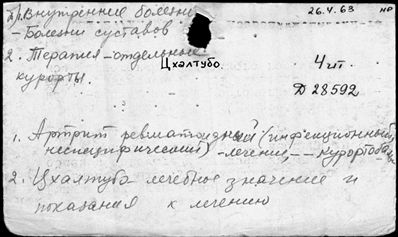 1. Внутренние болезни 26.4.63 нр
- Болезни суставов
2. Терапия - отдельные
курорты. Цхалтубо 4 шт.
Д 28592
1. Артрит ревматоидный (инфекционный
неспецифический) - лечение, -- курортобальн
2. Цхалтубо лечебное значение и
показания к лечению